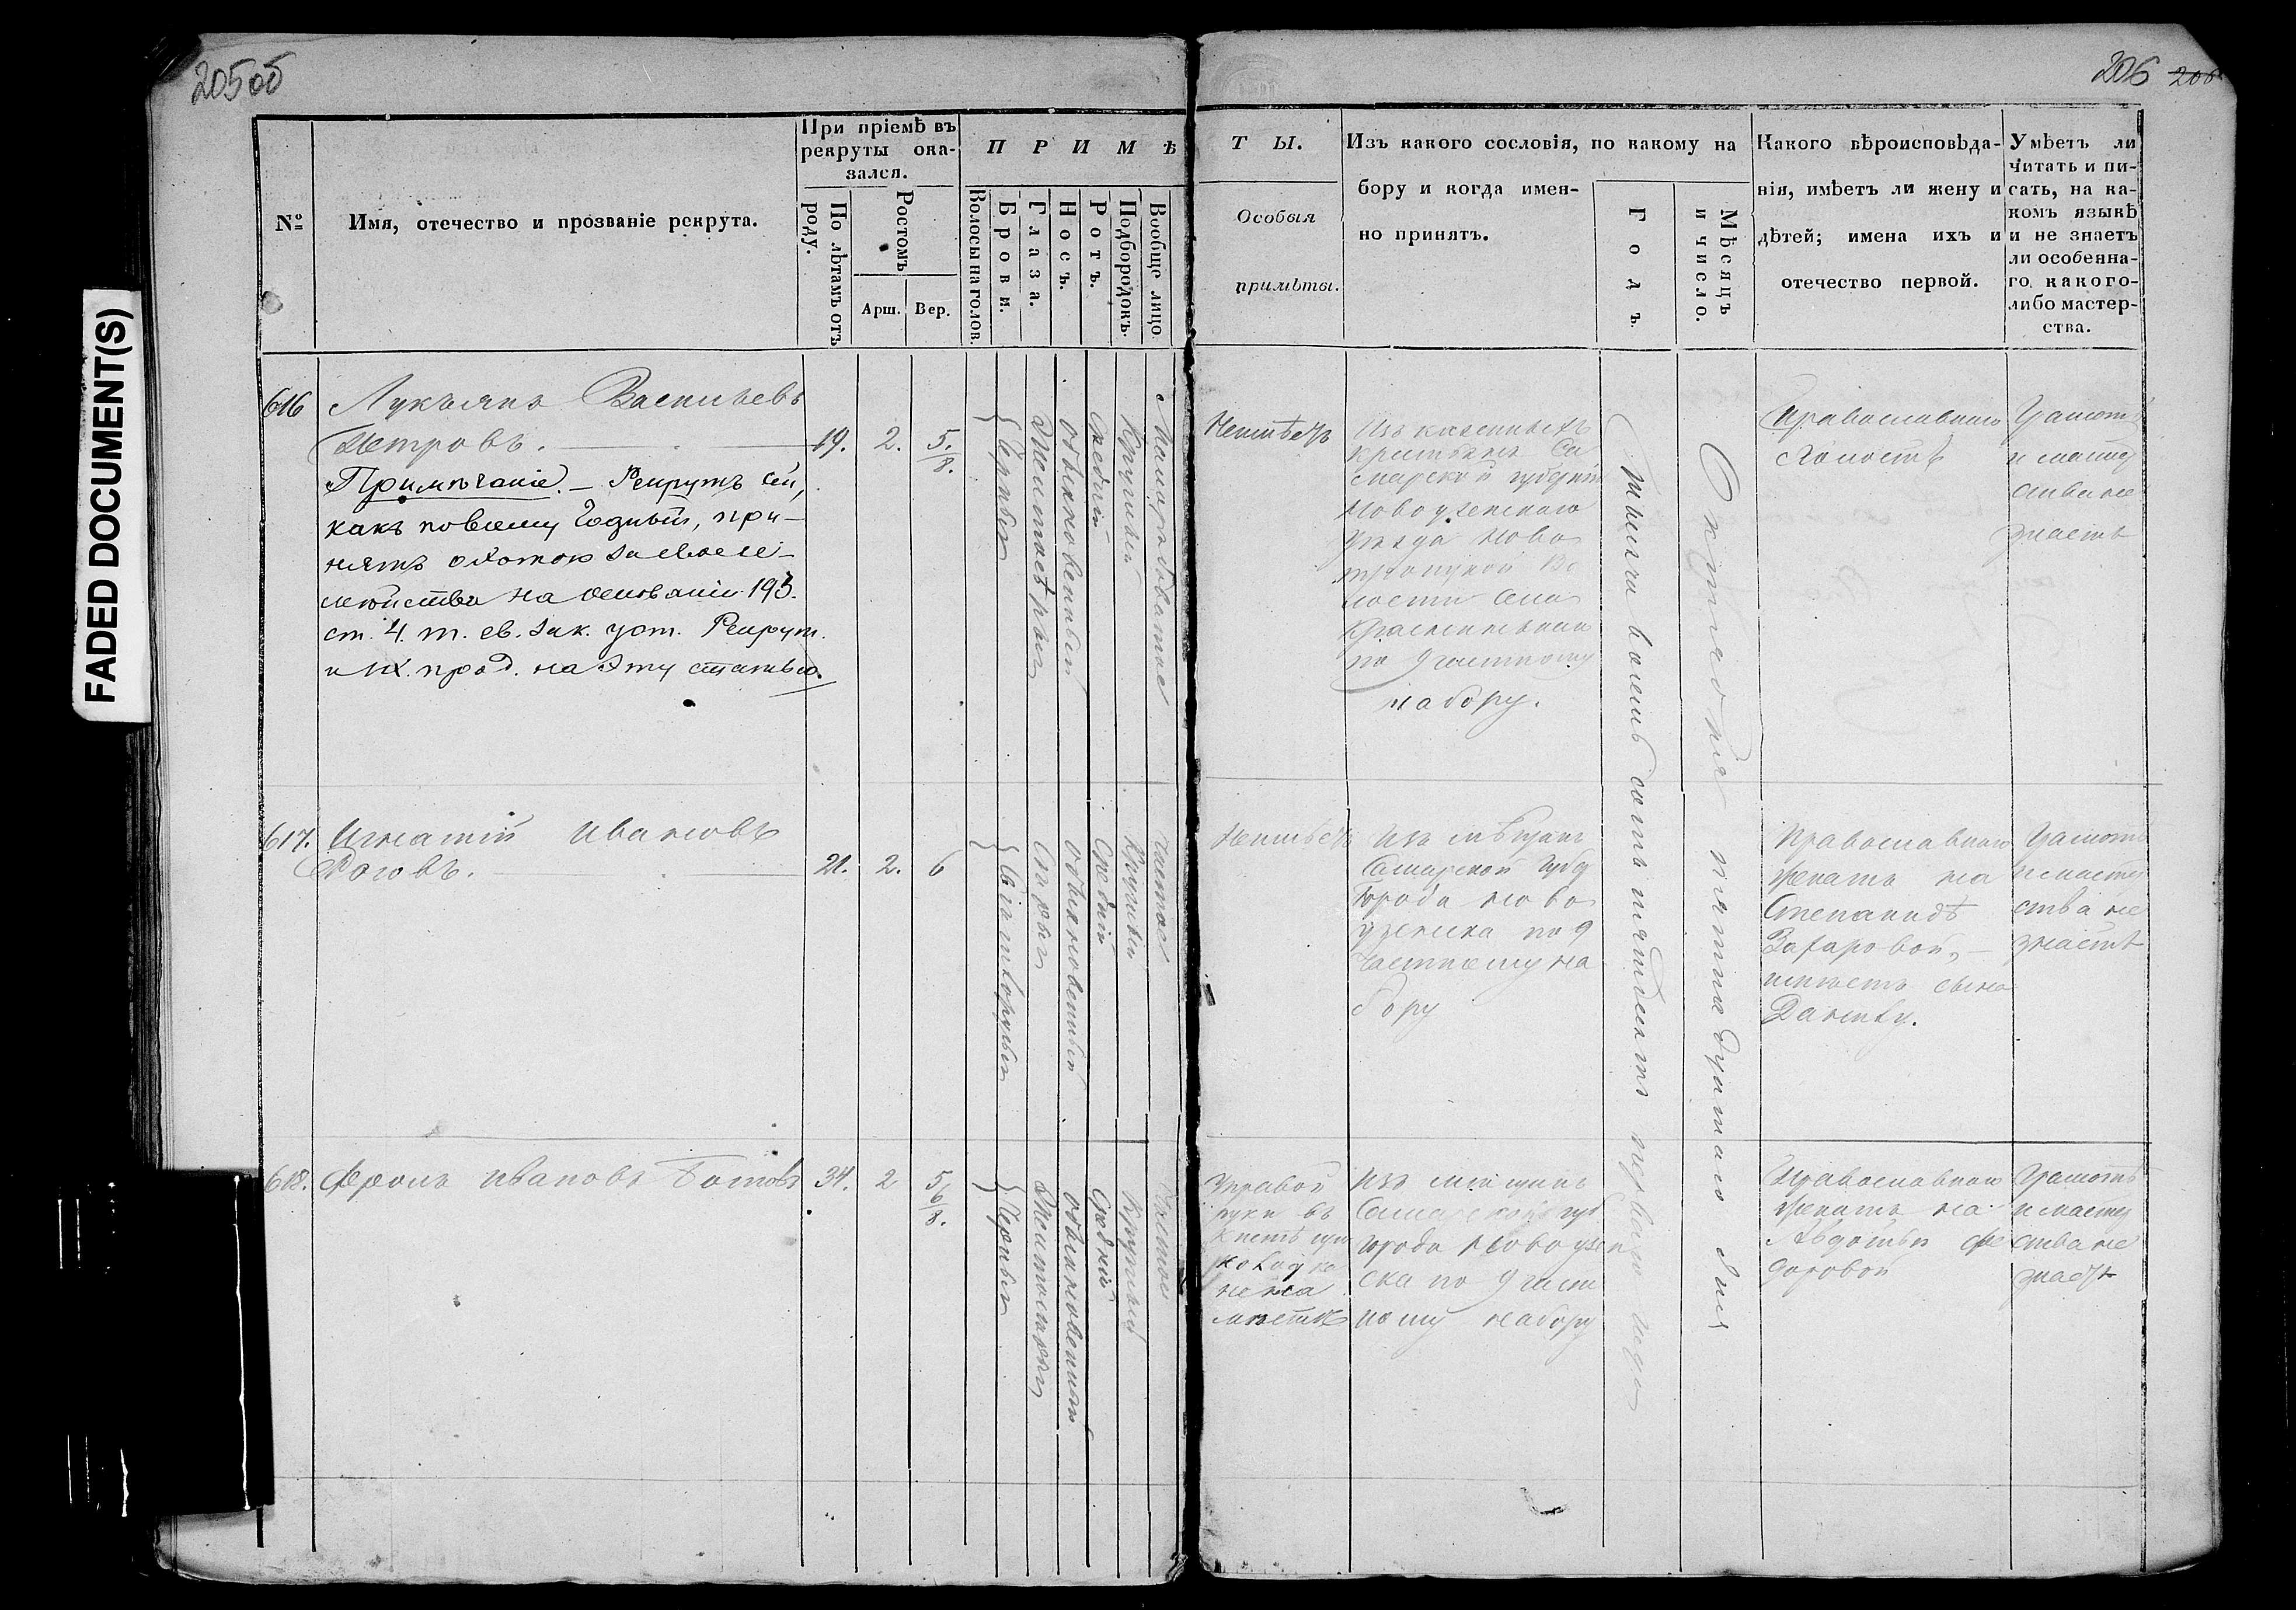 205 об
206 206
FADED DOCUMENT(S)
№
Имя, отечество и прозваніе рекрута.
При пріемѣ въ
рекруты ока-
зался.
По лѣтамъ отъ
роду.
Ростомъ
Арш.
Вер.
П Р И М Ѣ
Волосы на голов.
Брови.
Глаза.
Носъ.
Ротъ.
Подбородокъ.
Вообще лицо.
Т Ы.
Особыя
примѣты.
Изъ какого сословія, по какому на
бору и когда имен-
но принятъ.
Годъ.
Мѣсяцъ
и число.
Какого вѣроисповѣда-
нія, имѣетъ ли жену и
дѣтей; имена ихъ и
отечество первой.
Умѣетъ ли
читать и пи-
сать, на ка-
комъ языкѣ
и не знаетъ
ли особенна-
го какого-
либо мастер-
ства.
616
Лукьянъ Васильевъ
Петровъ.
Примѣчаніе. – Рекрутъ сей,
какъ по всему годный, при-
нятъ охотою за свое се-
мейство на основаніи 193.
ст. 4. т. св. зак. уст. Рекрут.
и IX. прод. на эту статью.
19.
2.
5/8.
Черные
Желтосѣрые
обыкновенный
Средній
Круглый
Малорябоватое
Неимѣетъ
Изъ казенныхъ
крестьянъ Са
марской губерніи
Новоузенскаго
уѣзда Ново
троицкой Во
лости села
по 9 частному
набору.
Православнаго
Холостъ
Грамотѣ
и мастер
ства не
знаетъ
Тысяча восемь сотъ пятьдесятъ перваго года
Октября пятнадцатаго дня
617.
Игнатій Ивановъ
Роговъ.
21.
2.
6
Свѣтлорусые
Сѣрые
обыкновенный
Средній
Круглый
чистое
Неимѣетъ
Изъ мѣщанъ
Самарской губ
города Ново
узенска по 9
частному на
бору
Православнаго
женатъ на
Степанидѣ
Захаровой, –
имѣетъ сына
Данилу.
Грамотѣ
и масте
ства не
знаетъ
618.
Фролъ Ивановъ Ботовъ
34.
2
5 6/8.
Черные
Желтокарие
обыкновенный
Средній
Круглый
Чистое
У правой
руки въ
кисти
мѣстѣ
Изъ мѣщанъ
Самарской гу
города Новоузен
ска по 9 част
ному набору
Православнаго
женатъ на
Авдотьи Фе
доровой
Грамотѣ
и мастер
ства не
знаетъ